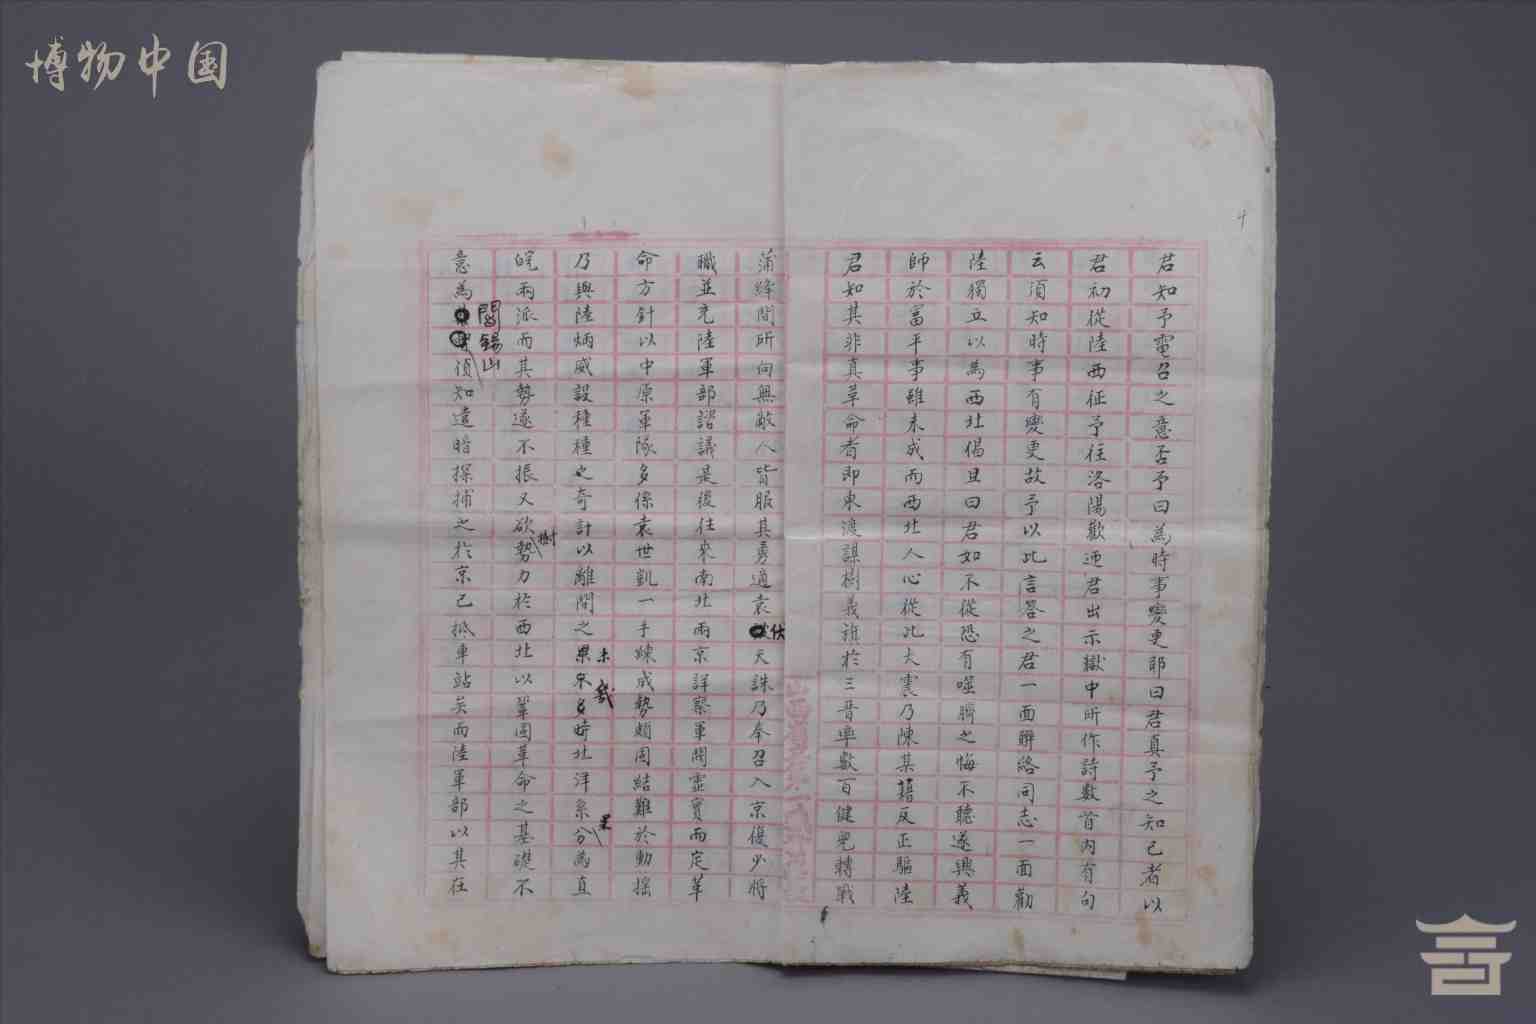 博物中国
君知予電召之意否予曰為時事變更耶曰君真予之知己者以
君初從陸西征予往洛陽歡迎君出示獄中所作詩數首內有句
云須知時事有變更故予以此言答之君一面聯絡同志一面勸
陸獨立以為西北倡且曰君如不從恐有噬臍之悔不聽遂興義
師於富平事雖未成而西北人心從此大震乃陳某藉反正驅陸
君知其非真革命者即東渡謀樹義旗於三晋率數百健兒轉戰
蒲絳間所向無敵人皆服其勇適袁伏天誅乃奉召入京復少將
職並充陸軍部諮議是後往來南北兩京詳察軍閥虛實而定革
命方針以中原軍隊多係袁世凱一手練成勢頗固結難於動搖
乃與陸炳威設種種之奇計以離間之未幾果時北洋系分為直
皖兩派而其勢遂不振又欲樹勢力於西北以鞏固革命之基礎不
意為閻錫山偵知遣暗探捕之於京已抵車站矣而陸軍部以其在